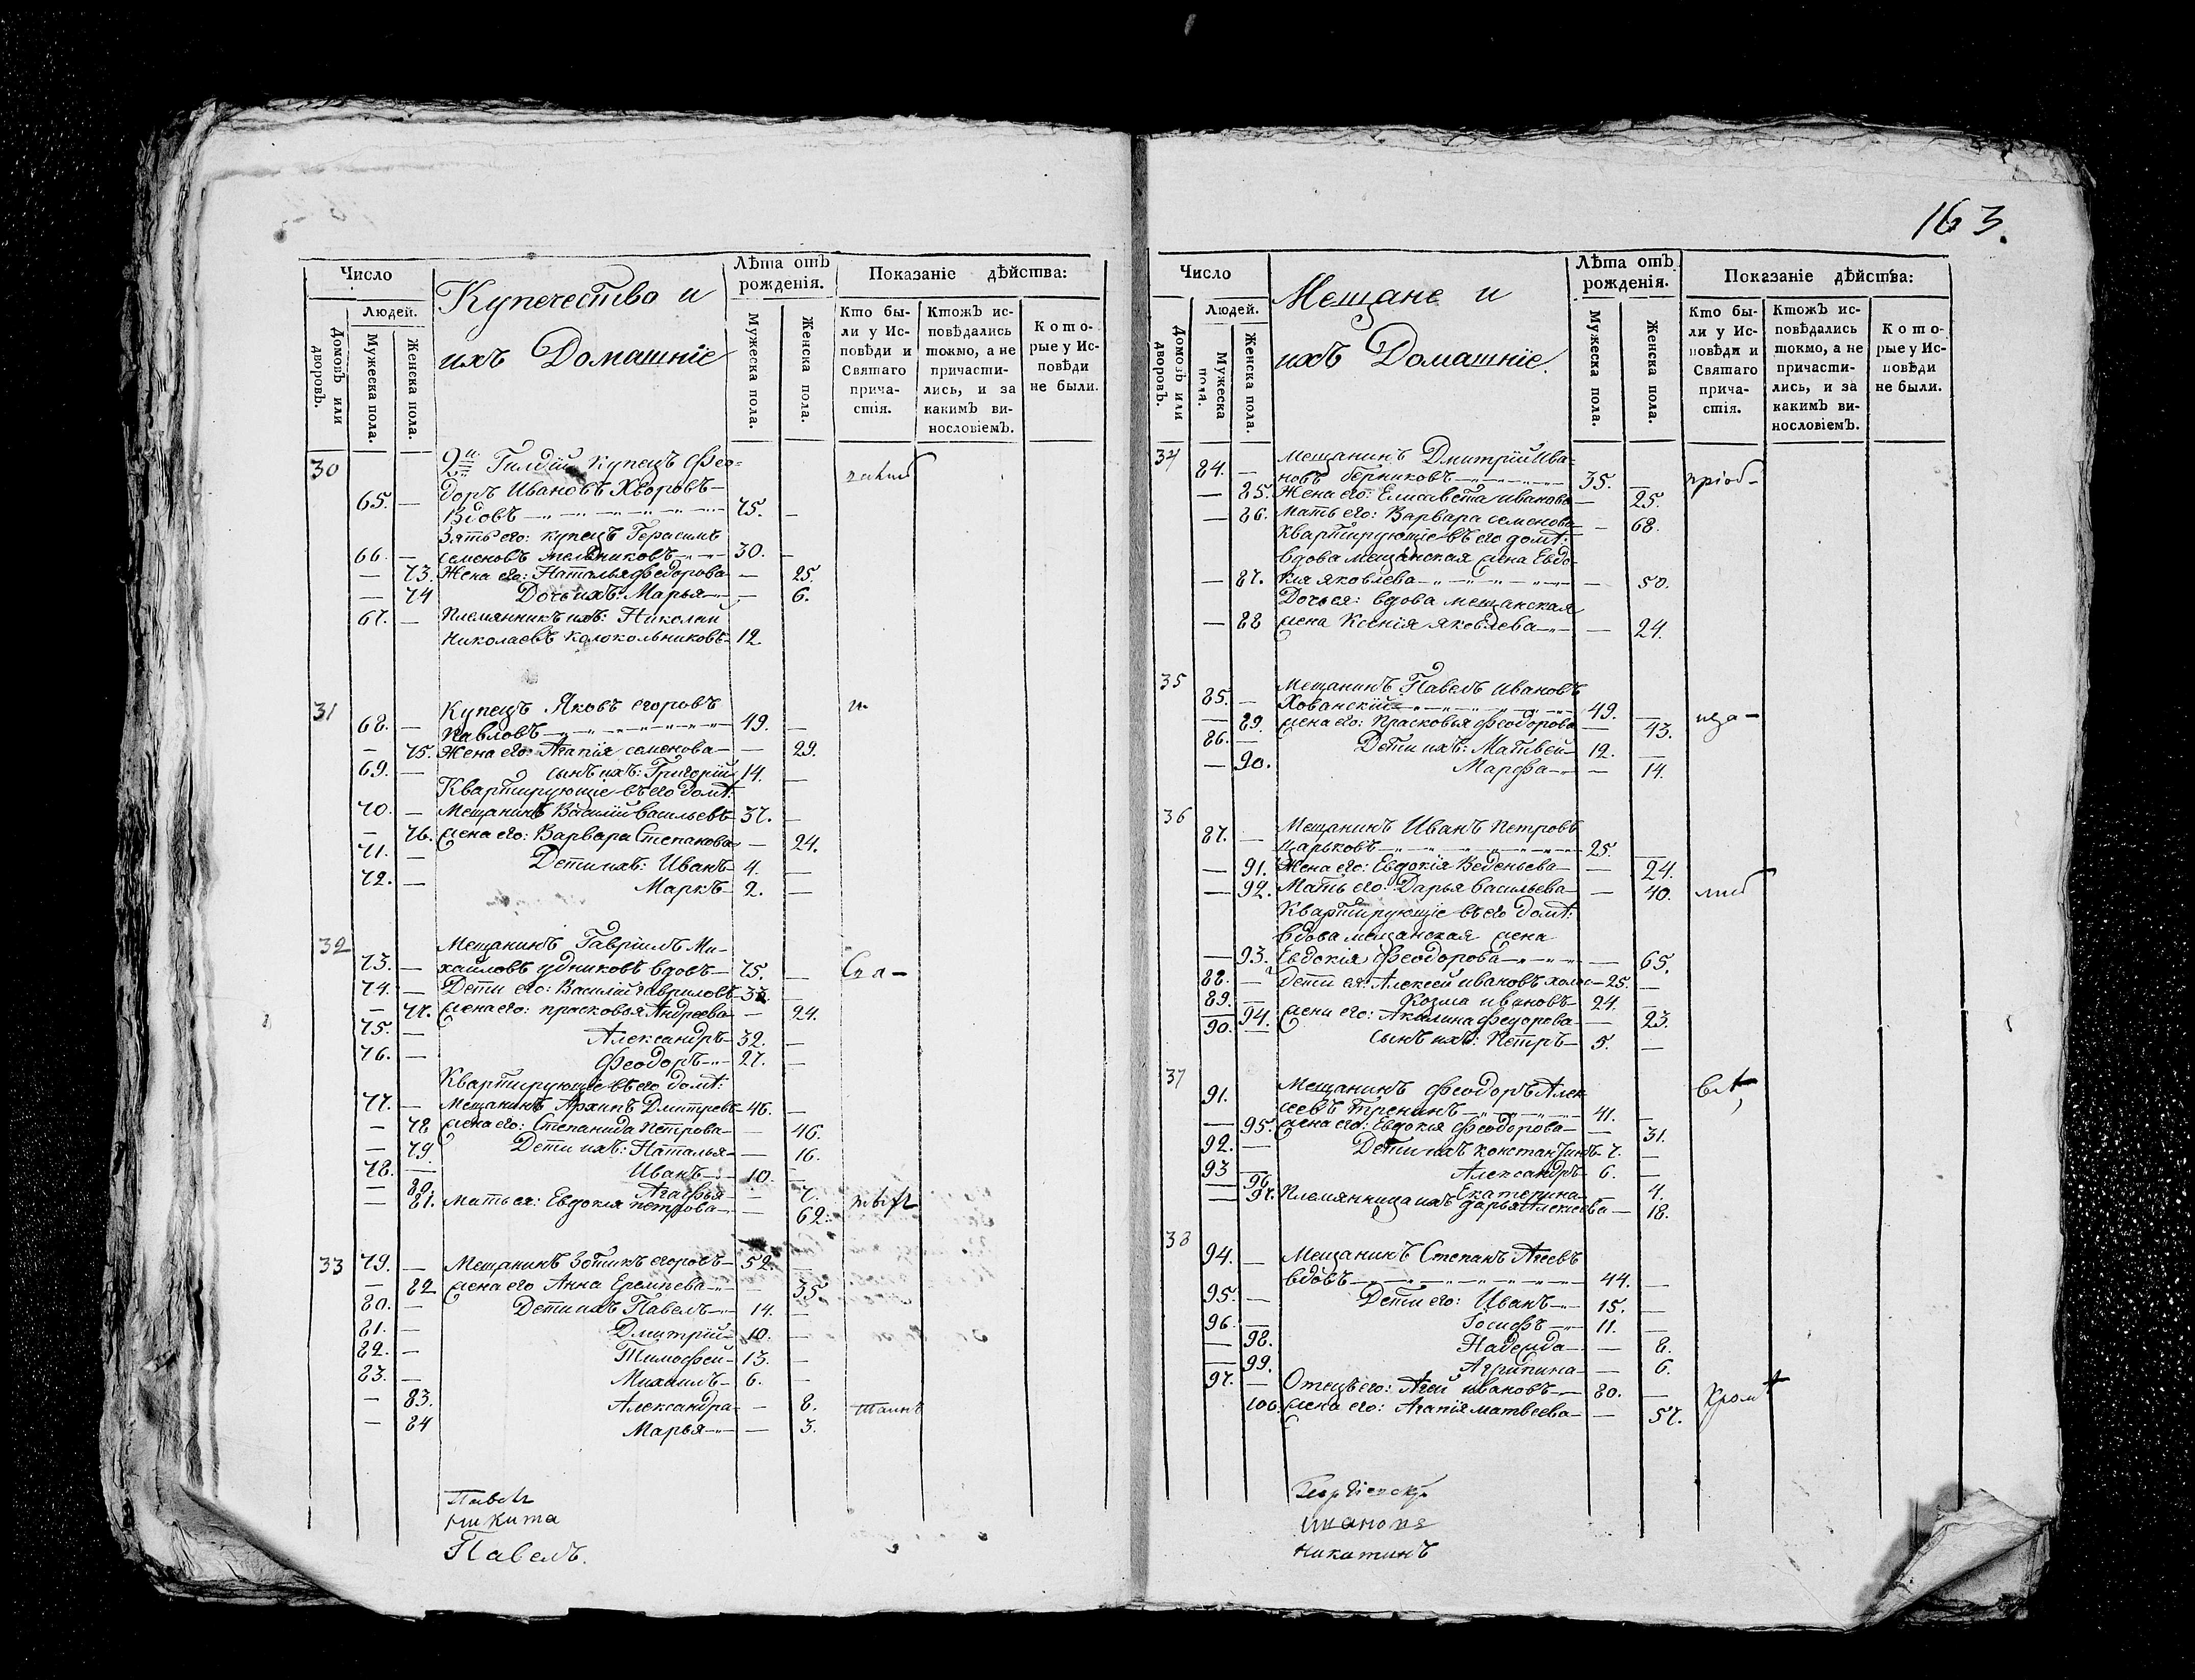 163.
Число
Людей.
Домовъ или дворовъ.
Мужеска пола.
Женска пола.
Купечество и
ихъ Домашніе
Лѣта отъ рожденія.
Мужеска пола.
Женска пола.
Показаніе дѣйства:
Кто были у Исповѣди и Святаго причастія.
Ктожъ исповѣдались токмо, а не причастились, и за какимъ винословіемъ.
Которые у Исповѣди не были.
30 Гилдіи Купецъ Ѳео-
65. — доръ Ивановъ Хворовъ —
Вдовъ 75. —
Зять его: купецъ Герасимъ
66. — семеновъ 30. —
— 73. Жена его: Наталья федорова — 25.
— 74 Дочь ихъ: Марья — 6.
67. — Племянникъ ихъ: Николай
Николаевъ Колокольниковъ 12
31 Купецъ Яковъ егоровъ
68. — Павловъ 49. —
— 75. Жена его: Агапія семенова — 29.
69. — сынъ ихъ: Григорій 14. —
Квартирующіе въ его домѣ:
70. — Мещанинъ Василій васильевъ 37. —
— 76. жена его: Варвара Степанова — 24.
71. — Дети ихъ: Иванъ 4. —
72. — Маркъ 2. —
32 Мещанинъ Гавріилъ Ми-
73. — хайловъ удниковъ вдовъ 75. —
74. — Дети его: Василій гавриловъ —
— 77. жена его: прасковья Андреева — 24.
75. — Александръ 32. —
76. — Феодоръ 27. —
Квартирующіе въ его домѣ:
77. — Мещанинъ Архипъ Дмитревъ 46. —
— 78 жена его: Степанида Петрова — 46.
— 79. Дети ихъ: Наталья — 16.
78. — Иванъ 10. —
— 80. Агафья — 7.
— 81. Мать ея: Евдокія петрова — 62.
33 79. — Мещанинъ Зотикъ егоровъ 52. —
— 82 жена его Анна Еремеева — 35
80. — Дети ихъ Павелъ 14. —
81. — Дмитрій 10. —
82. — Тимофей 13. —
83. — Михаилъ 6. —
— 83. Александра — 8.
— 84 Марья — 3.
Никита
Павелъ.
Число
Людей.
Домовъ или дворовъ.
Мужеска пола.
Женска пола.
Мещане и
ихъ Домашніе.
Лѣта отъ рожденія.
Мужеска пола.
Женска пола.
Показаніе дѣйства:
Кто были у Исповѣди и Святаго причастія.
Ктожъ исповѣдались токмо, а не причастились, и за какимъ винословіемъ.
Которые у Исповѣди не были.
34 Мещанинъ Дмитрій Ива-
84. — новъ берниковъ 35. — пріоб-
— 85. Жена его: Елисавета иванова — 25.
— 86. Мать его: Варвара семенова — 68.
Квартирующіе въ его домѣ:
вдова мещанская жена Евдо-
— 87. кія яковлева — 50.
Дочь ея: вдова мещанская
— 88 жена Ксенія яковлева — 24.
35 Мещанинъ Павелъ ивановъ
85. — Хованскій 49. —
— 89. жена его: Прасковья феодорова — 43.
86. — Дети ихъ: Матвей 12. —
— 90. Марфа — 14.
36 Мещанинъ Иванъ петровъ
87. — Царьковъ 25. —
— 91. Жена его: Евдокія Веденьева — 24.
— 92. Мать его: Дарья васильева — 40.
Квартирующіе въ его домѣ:
вдова мещанская жена
— 93. Евдокія феодорова — 65.
88. — Дети ея: Алексей ивановъ холос 25. —
89. — Козма ивановъ 24. —
— 94. жена его: Акилина федорова — 23.
90. — сынъ ихъ: Петръ 5. —
37 Мещанинъ феодоръ Алек
91. сеевъ Тренинъ 41. —
— 95. жена его: Евдокія феодорова — 31.
92. — Дети ихъ константинъ 7. —
93 — Александръ 6. —
— 96. Екатерина — 4.
— 97. Племянница ихъ дарья Алексеева — 18.
38
94. — Мещанинъ Степанъ Агеевъ
вдовъ 44. —
95. — Дети его: Иванъ 15. —
96. — Іосифъ 11. —
— 98. Надежда — 8.
— 99. Агрипина — 6.
97. — Отецъ его: Агей ивановъ 80. —
100. жена его: Агапія матвеева — 57.
Никитинъ